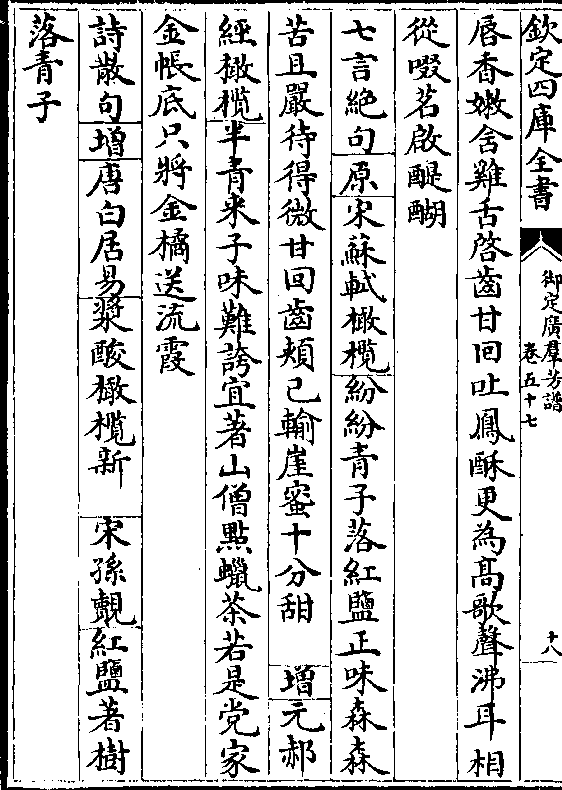 欽定四庫全書
御定廣群芳譜
卷五十七
十八
唇香嫩含雞舌啓齒甘回吐鳳酥更為高歌聲沸耳相
從啜茗啟醍醐
七言絕句原宋蘇軾橄欖紛紛青子落紅鹽正味森森
苦且嚴待得微甘回齒頰已輸崖蜜十分甜 增元郝
經橄欖半青来子味難誇宜著山僧點蠟茶若是党家
金帳底只將金橘送流霞
詩散句增唐白居易漿酸橄欖新 宋孫覿紅鹽著樹
落青子